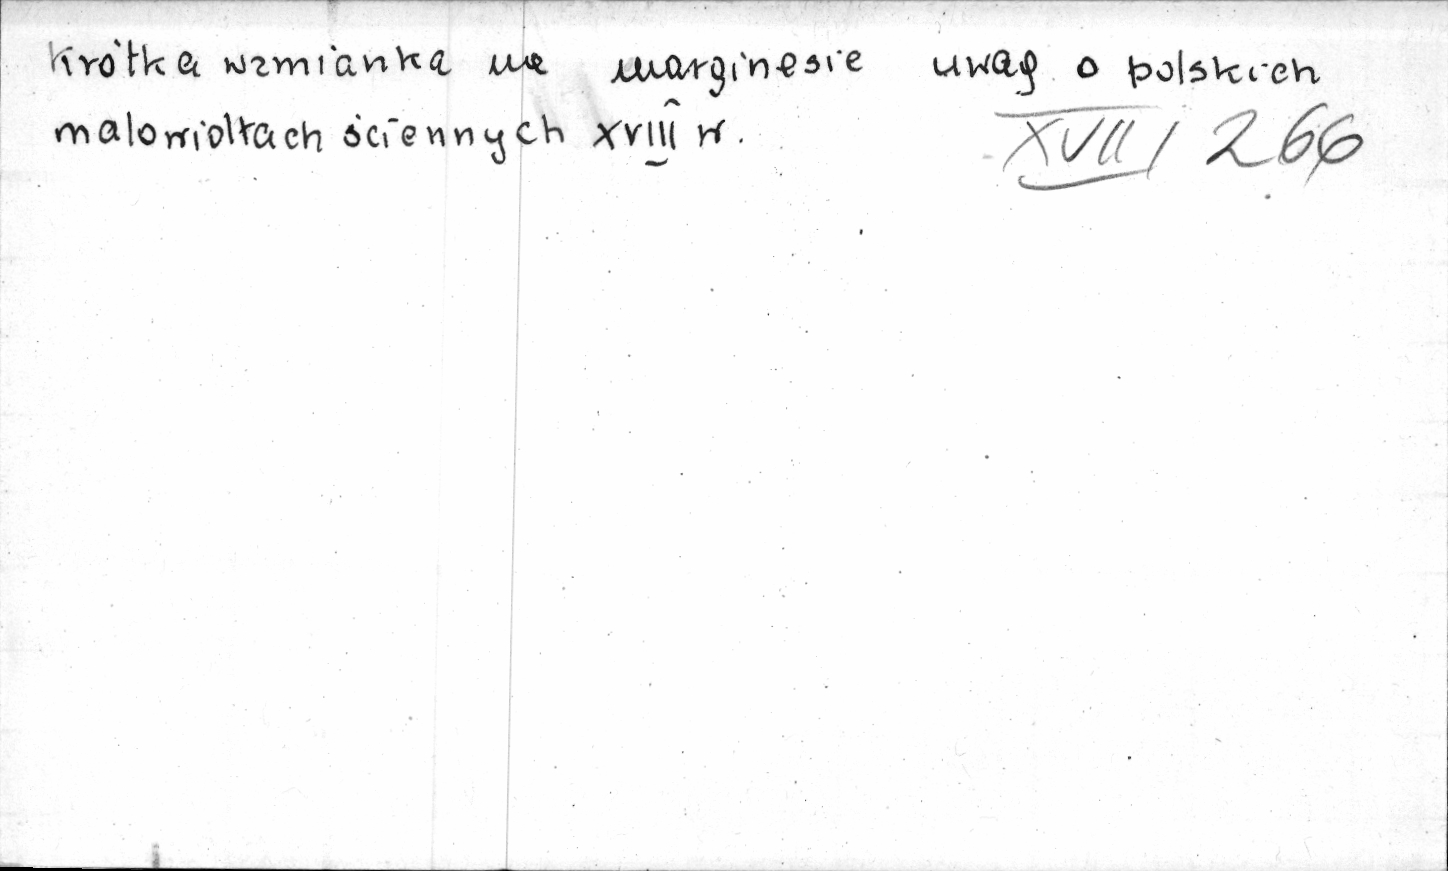 Krótka wzmianka na marginesie uwag o polskich
malowidłach ściennych XVIII w.
XVII / 266